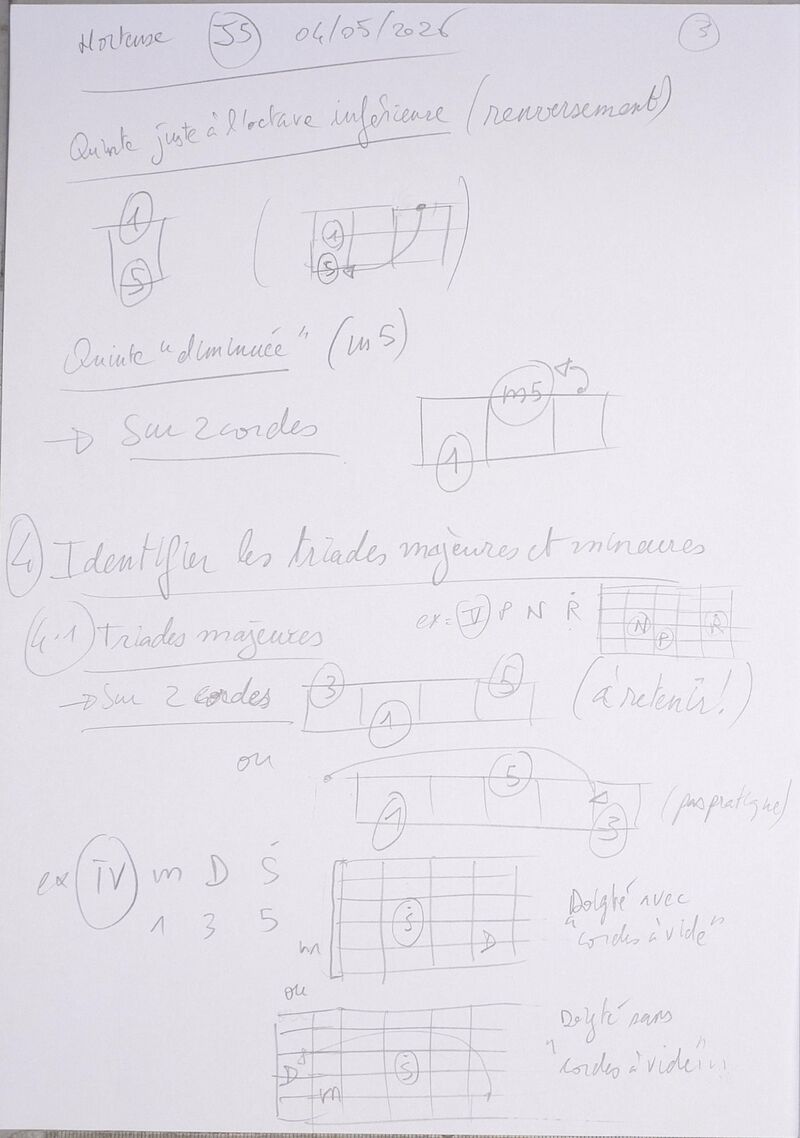 Hortense J5 04/05/2026 3
Quinte juste à l'octave inférieure (renversement)
1
5
1
5
Quinte "diminuée" (m5)
→ Sur 2 cordes
m5
1
4 Identifier les triades majeures et mineures
4.1 Triades majeures
ex = V P N Ṙ
N P Ṙ
→ Sur 2 cordes
3 1 5
(à retenir!)
ou
1 5 3
(pas pratique)
ex IV m D Ṡ
1 3 5
m Ṡ D
Doigté avec
"cordes à vide"
ou
D m Ṡ
Doigté sans
"cordes à vide"